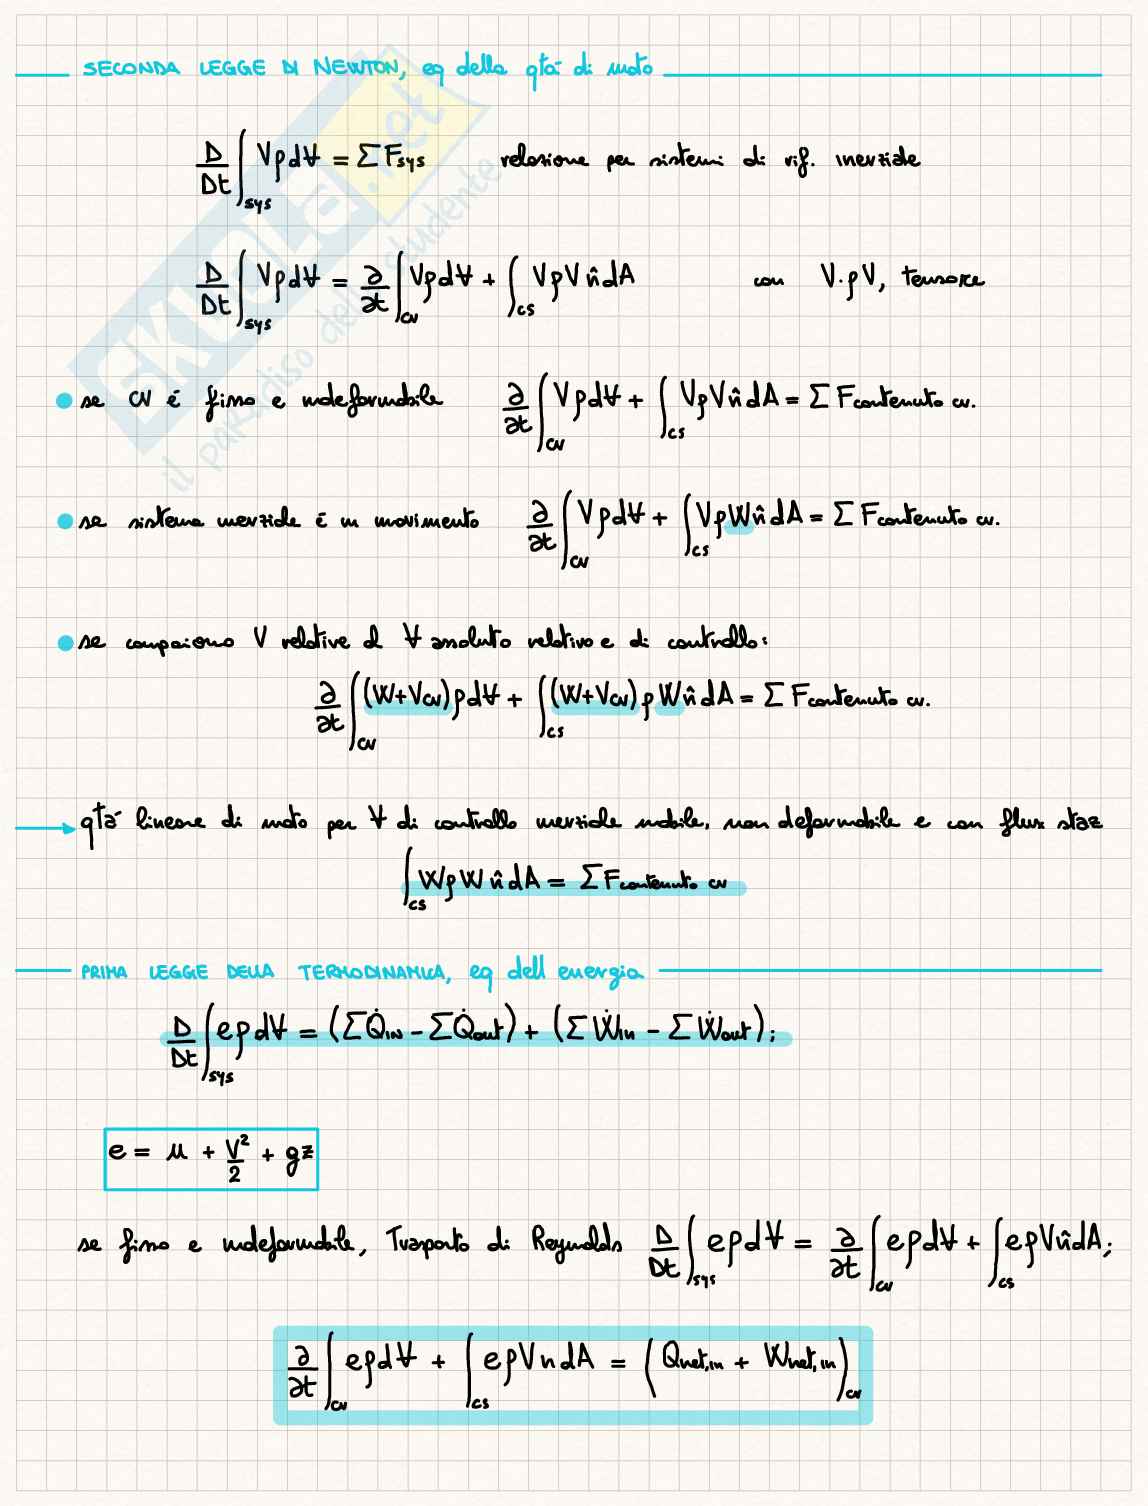 SECONDA LEGGE DI NEWTON, eq della qtà di moto
D/Dt ∫sys Vρd∀ = ΣFsys relazione per sistemi di rif. inerziale
D/Dt ∫sys Vρd∀ = ∂/∂t ∫cv Vρd∀ + ∫cs VρV n̂ dA con V·ρV, tensore
• se cv é fisso e indeformabile ∂/∂t ∫cv Vρd∀ + ∫cs VρV n̂ dA = Σ Fcontenuto cv.
• se sistema inerziale é in movimento ∂/∂t ∫cv Vρd∀ + ∫cs VρW n̂ dA = Σ Fcontenuto cv.
• se compaiono V relative al ∀ assoluto relativo e di controllo:
∂/∂t ∫cv (W+Vcv)ρd∀ + ∫cs (W+Vcv) ρ W n̂ dA = Σ Fcontenuto cv.
→ qtà lineare di moto per ∀ di controllo inerziale mobile, non deformabile e con flux staz
∫cs WρW n̂ dA = ΣFcontenuto cv
PRIMA LEGGE DELLA TERMODINAMICA, eq dell energia
D/Dt ∫sys eρd∀ = (ΣQ̇IN - ΣQ̇out) + (ΣẆin - ΣẆout);
e = u + V²/2 + gz
se fisso e indeformabile, Trasporto di Reynolds D/Dt ∫sys eρd∀ = ∂/∂t ∫cv eρd∀ + ∫cs eρV n̂ dA;
∂/∂t ∫cv eρd∀ + ∫cs eρV n dA = (Qnet,in + Wnet,in)cv
SKUOLA.net
il paradiso dello studente